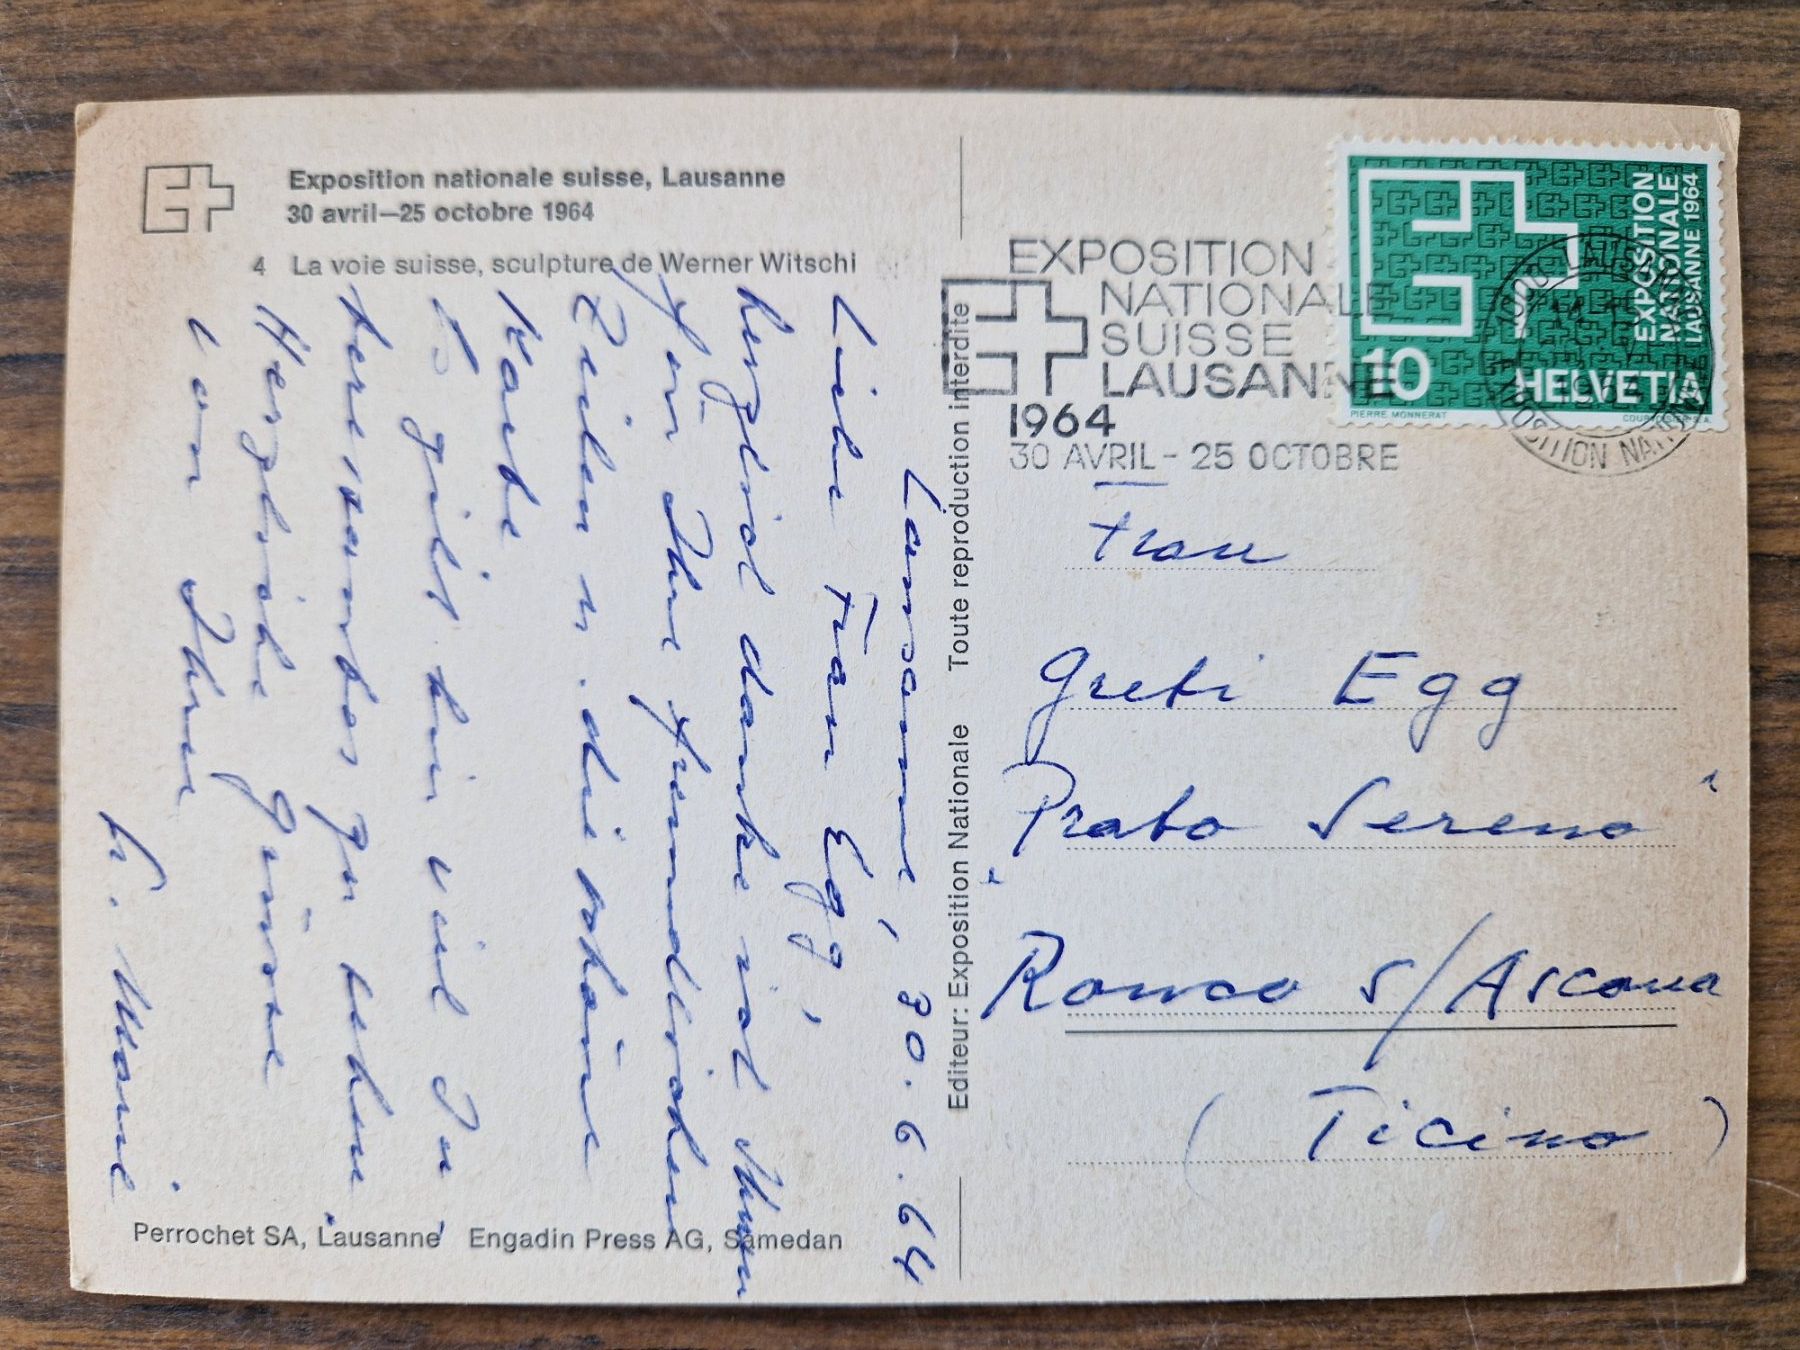 Exposition nationale suisse, Lausanne
30 avril—25 octobre 1964
4 La voie suisse, sculpture de Werner Witschi
Lausanne, 30.6.64
Liebe Frau Egg,
herzlich danke ich Ihnen
für Ihre freundlichen
Zeilen u. die schöne
Karte
Es gibt hier viel In
teressantes zu sehen.
Herzliche Grüsse
von Ihrer
Perrochet SA, Lausanne Engadin Press AG, Samedan
Editeur: Exposition Nationale Toute reproduction interdite
EXPOSITION
NATIONALE
SUISSE
LAUSANNE
1964
30 AVRIL - 25 OCTOBRE
EXPOSITION
NATIONALE
LAUSANNE 1964
10
HELVETIA
PIERRE MONNERAT
Frau
Greti Egg
Prato Sereno
Ronco s/Ascona
(Ticino)